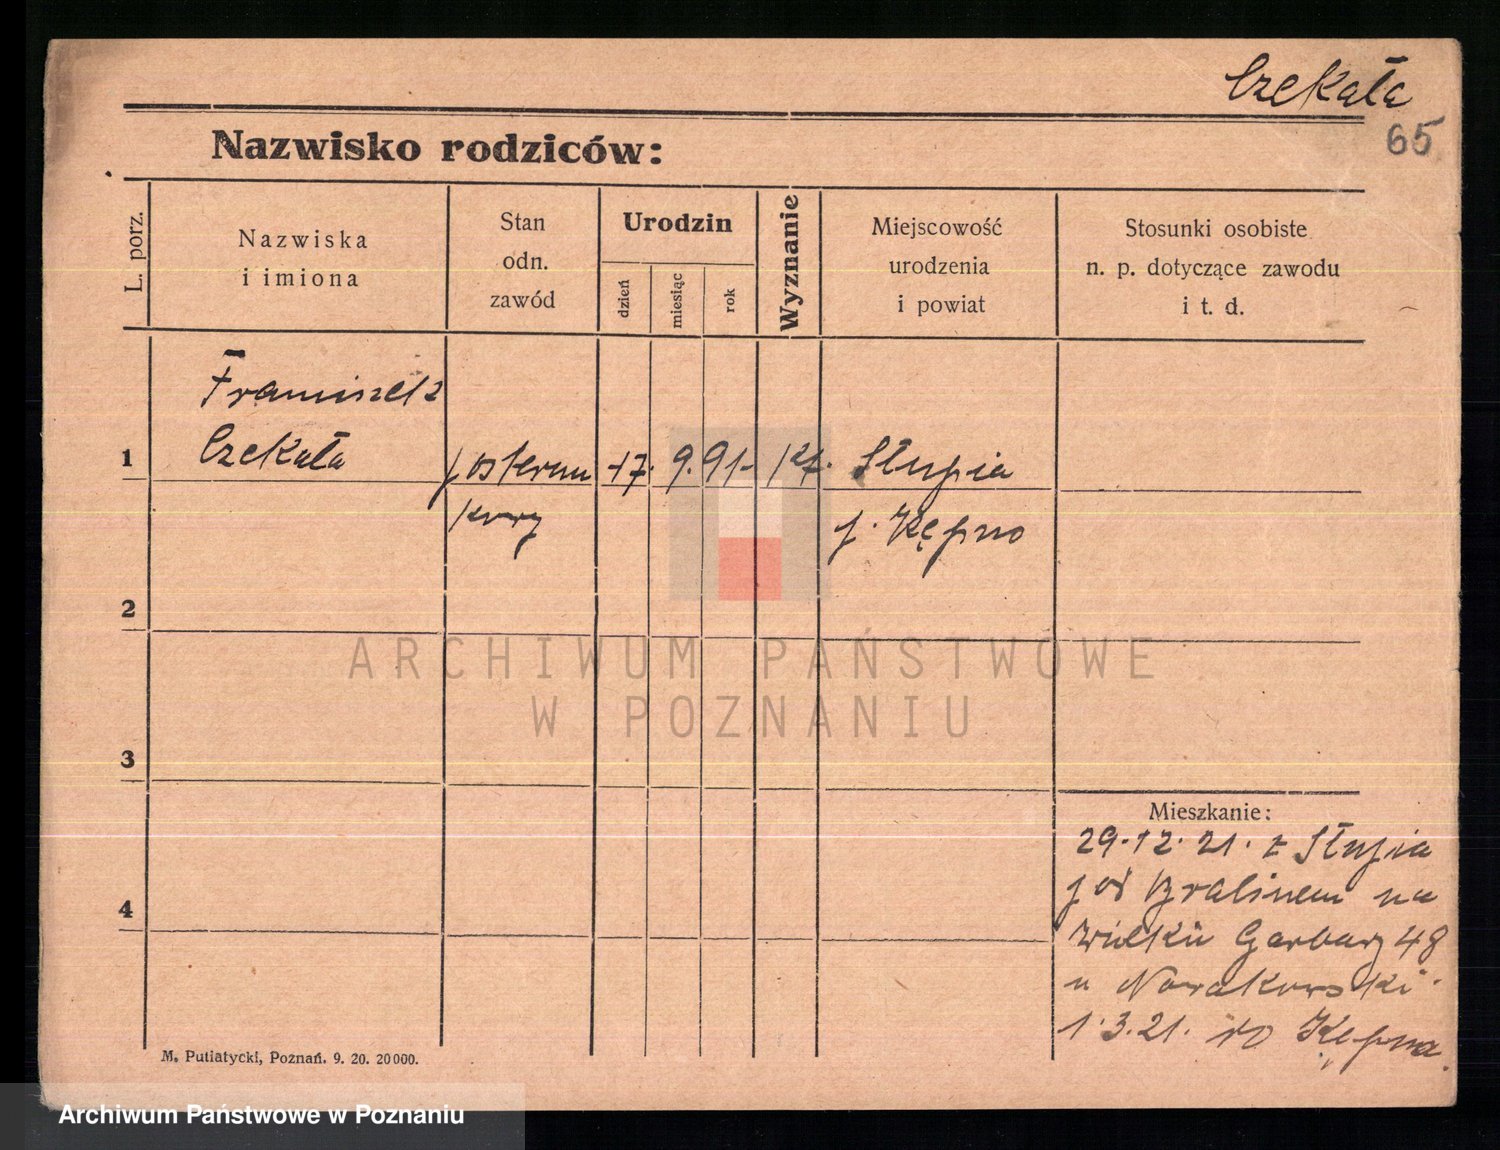 Czekała
65
Nazwisko rodziców:
L. porz.
Nazwiska
i imiona
Stan
odn.
zawód
Urodzin
dzień
miesiąc
rok
Wyznanie
Miejscowość
urodzenia
i powiat
Stosunki osobiste
n. p. dotyczące zawodu
i t. d.
Franciszek
1 Czekała posterun 17. 9. 91. kt. Słupia
kowy p. Kępno
2
3
4
Mieszkanie:
29.12.21. z Słupia
pod Bralinem na
Wielkie Garbary 48
u Nowakowski
1.3.21. do Kępna.
M. Putiatycki, Poznań. 9. 20. 20000.
ARCHIWUM PAŃSTWOWE
W POZNANIU
Archiwum Państwowe w Poznaniu